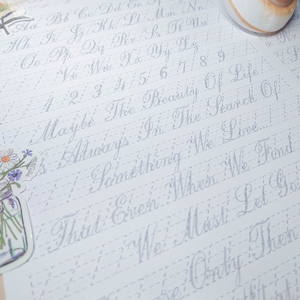 Aa Bb Cc Dd Ee
Hh Ii Jj Kk Ll Mm Nn
Oo Pp Qq Rr Ss Tt Uu
Vv Ww Xx Yy Zz
1 2 3 4 5 6 7 8 9
Maybe The Beauty Of Life
Is Always In The Search Of
Something We Love...
That Even When We Find
We Must Let Go
Only Then